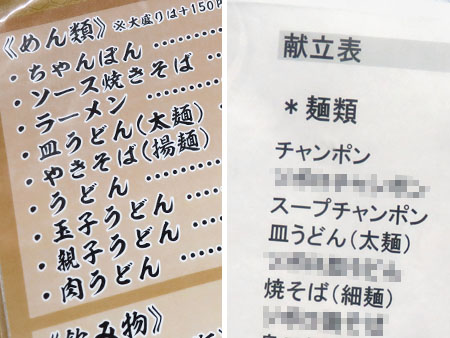 《めん類》※大盛りは+150円
・ちゃんぽん………
・ソース焼きそば……
・ラーメン…………
・皿うどん(太麺)……
・やきそば(揚麺)……
・うどん…………
・玉子うどん………
・親子うどん………
・肉うどん…………
《飲み物》
献立表
*麺類
チャンポン
スープチャンポン
皿うどん(太麺)
焼そば(細麺)